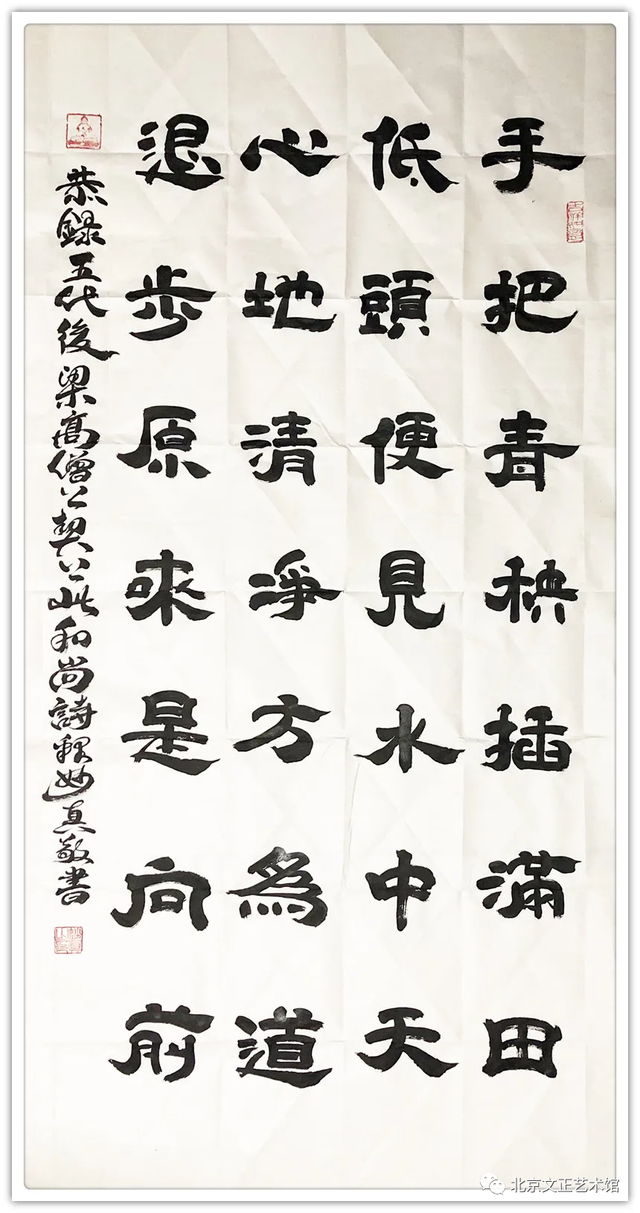 手把青秧插滿田
低頭便見水中天
心地清淨方為道
退步原來是向前
恭錄五代後梁高僧上契下此和尚詩釋妙真敬書
北京文正艺术馆